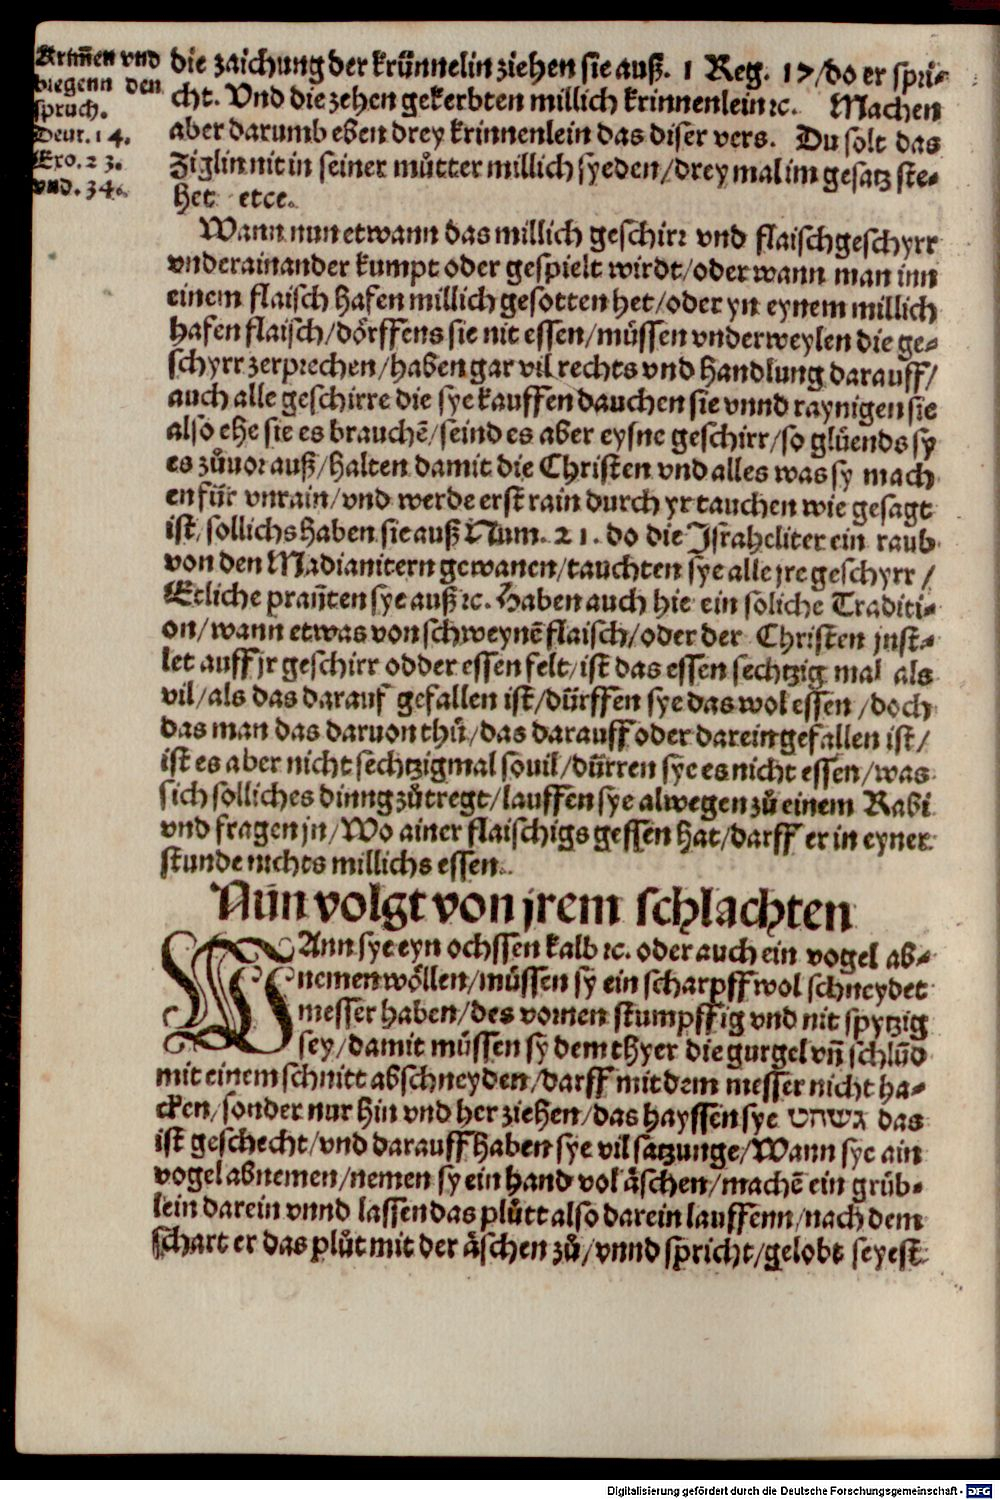 Krimen vnd
biegenn den
spruch.
Deut. 14.
Exo. 23.
vnd. 34.
die zaichung der krünnelin ziehen sie auß. 1 Reg. 17/do er spri-
cht. Vnd die zehen gekerbten millich krinnenlein ꝛc. Machen
aber darumb eben drey krinnenlein das diser vers. Du solt das
Ziglin nit in seiner můtter millich syeden/drey mal im gesatz ste-
het etce.
Wann nun etwann das millich geschirr vnd flaischgeschyrr
vnderainander kumpt oder gespielt wirdt/oder wann man inn
einem flaisch hafen millich gesotten het/oder yn eynem millich
hafen flaisch/dörffens sie nit essen/müssen vnderweylen die ge-
schyrr zerprechen/haben gar vil rechts vnd handlung darauff/
auch alle geschirre die sye kauffen dauchen sie vnnd raynigen sie
also ehe sie es brauchē/seind es aber eysne geschirr/so glüends sy
es zůuor auß/halten damit die Christen vnd alles was sy mach
en für vnrain/vnd werde erst rain durch yr tauchen wie gesagt
ist/sollichs haben sie auß Num. 21. do die Israheliter ein raub
von den Madianitern gewanen/tauchten sye alle jre geschyrr/
Etliche prañten sye auß ꝛc. Haben auch hie ein soliche Traditi-
on/wann etwas von schweynē flaisch/oder der Christen jnst-
let auff jr geschirr odder essen felt/ist das essen sechtzig mal als
vil/als das darauf gefallen ist/dürffen sye das wol essen/doch
das man das daruon thů/das darauff oder darein gefallen ist/
ist es aber nicht sechtzigmal souil/dürren sye es nicht essen/was
sich solliches dinng zůtregt/lauffen sye alwegen zů einem Rabi
vnd fragen jn/Wo ainer flaischigs gessen hat/darff er in eyner
stunde nichts millichs essen.
Nün volgt von jrem schlachten
WAnn sye eyn ochssen kalb ꝛc. oder auch ein vogel ab-
nemen wöllen/müssen sy ein scharpff wol schneydet
messer haben/des vornen stumpffig vnd nit spytzig
sey/damit müssen sy dem thyer die gurgel vñ schlūd
mit einem schnitt abschneyden/darff mit dem messer nicht ha-
cken/sonder nur hin vnd her ziehen/das hayssen sye das
ist geschecht/vnd darauff haben sye vil satzunge/Wann sye ain
vogel abnemen/nemen sy ein hand vol äschen/machē ein grüb-
lein darein vnnd lassen das plůtt also darein lauffenn/nach dem
schart er das plůt mit der äschen zů/vnnd spricht/gelobt seyest
Digitalisierung gefördert durch die Deutsche Forschungsgemeinschaft - DFG